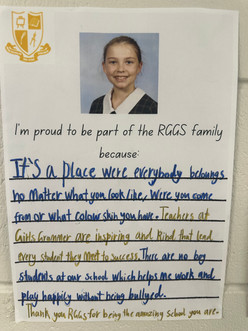 I'm proud to be part of the RGGS family
because:
It's a place were everybody belongs
no matter what you look like, were you come
from or what colour skin you have. Teachers at
Girls Grammer are inspiring and kind that lead
every student they meet to success. There are no boy
students at our school which helps me work and
play happily without being bullyed.
Thank you RGGS for being the amazing school you are.